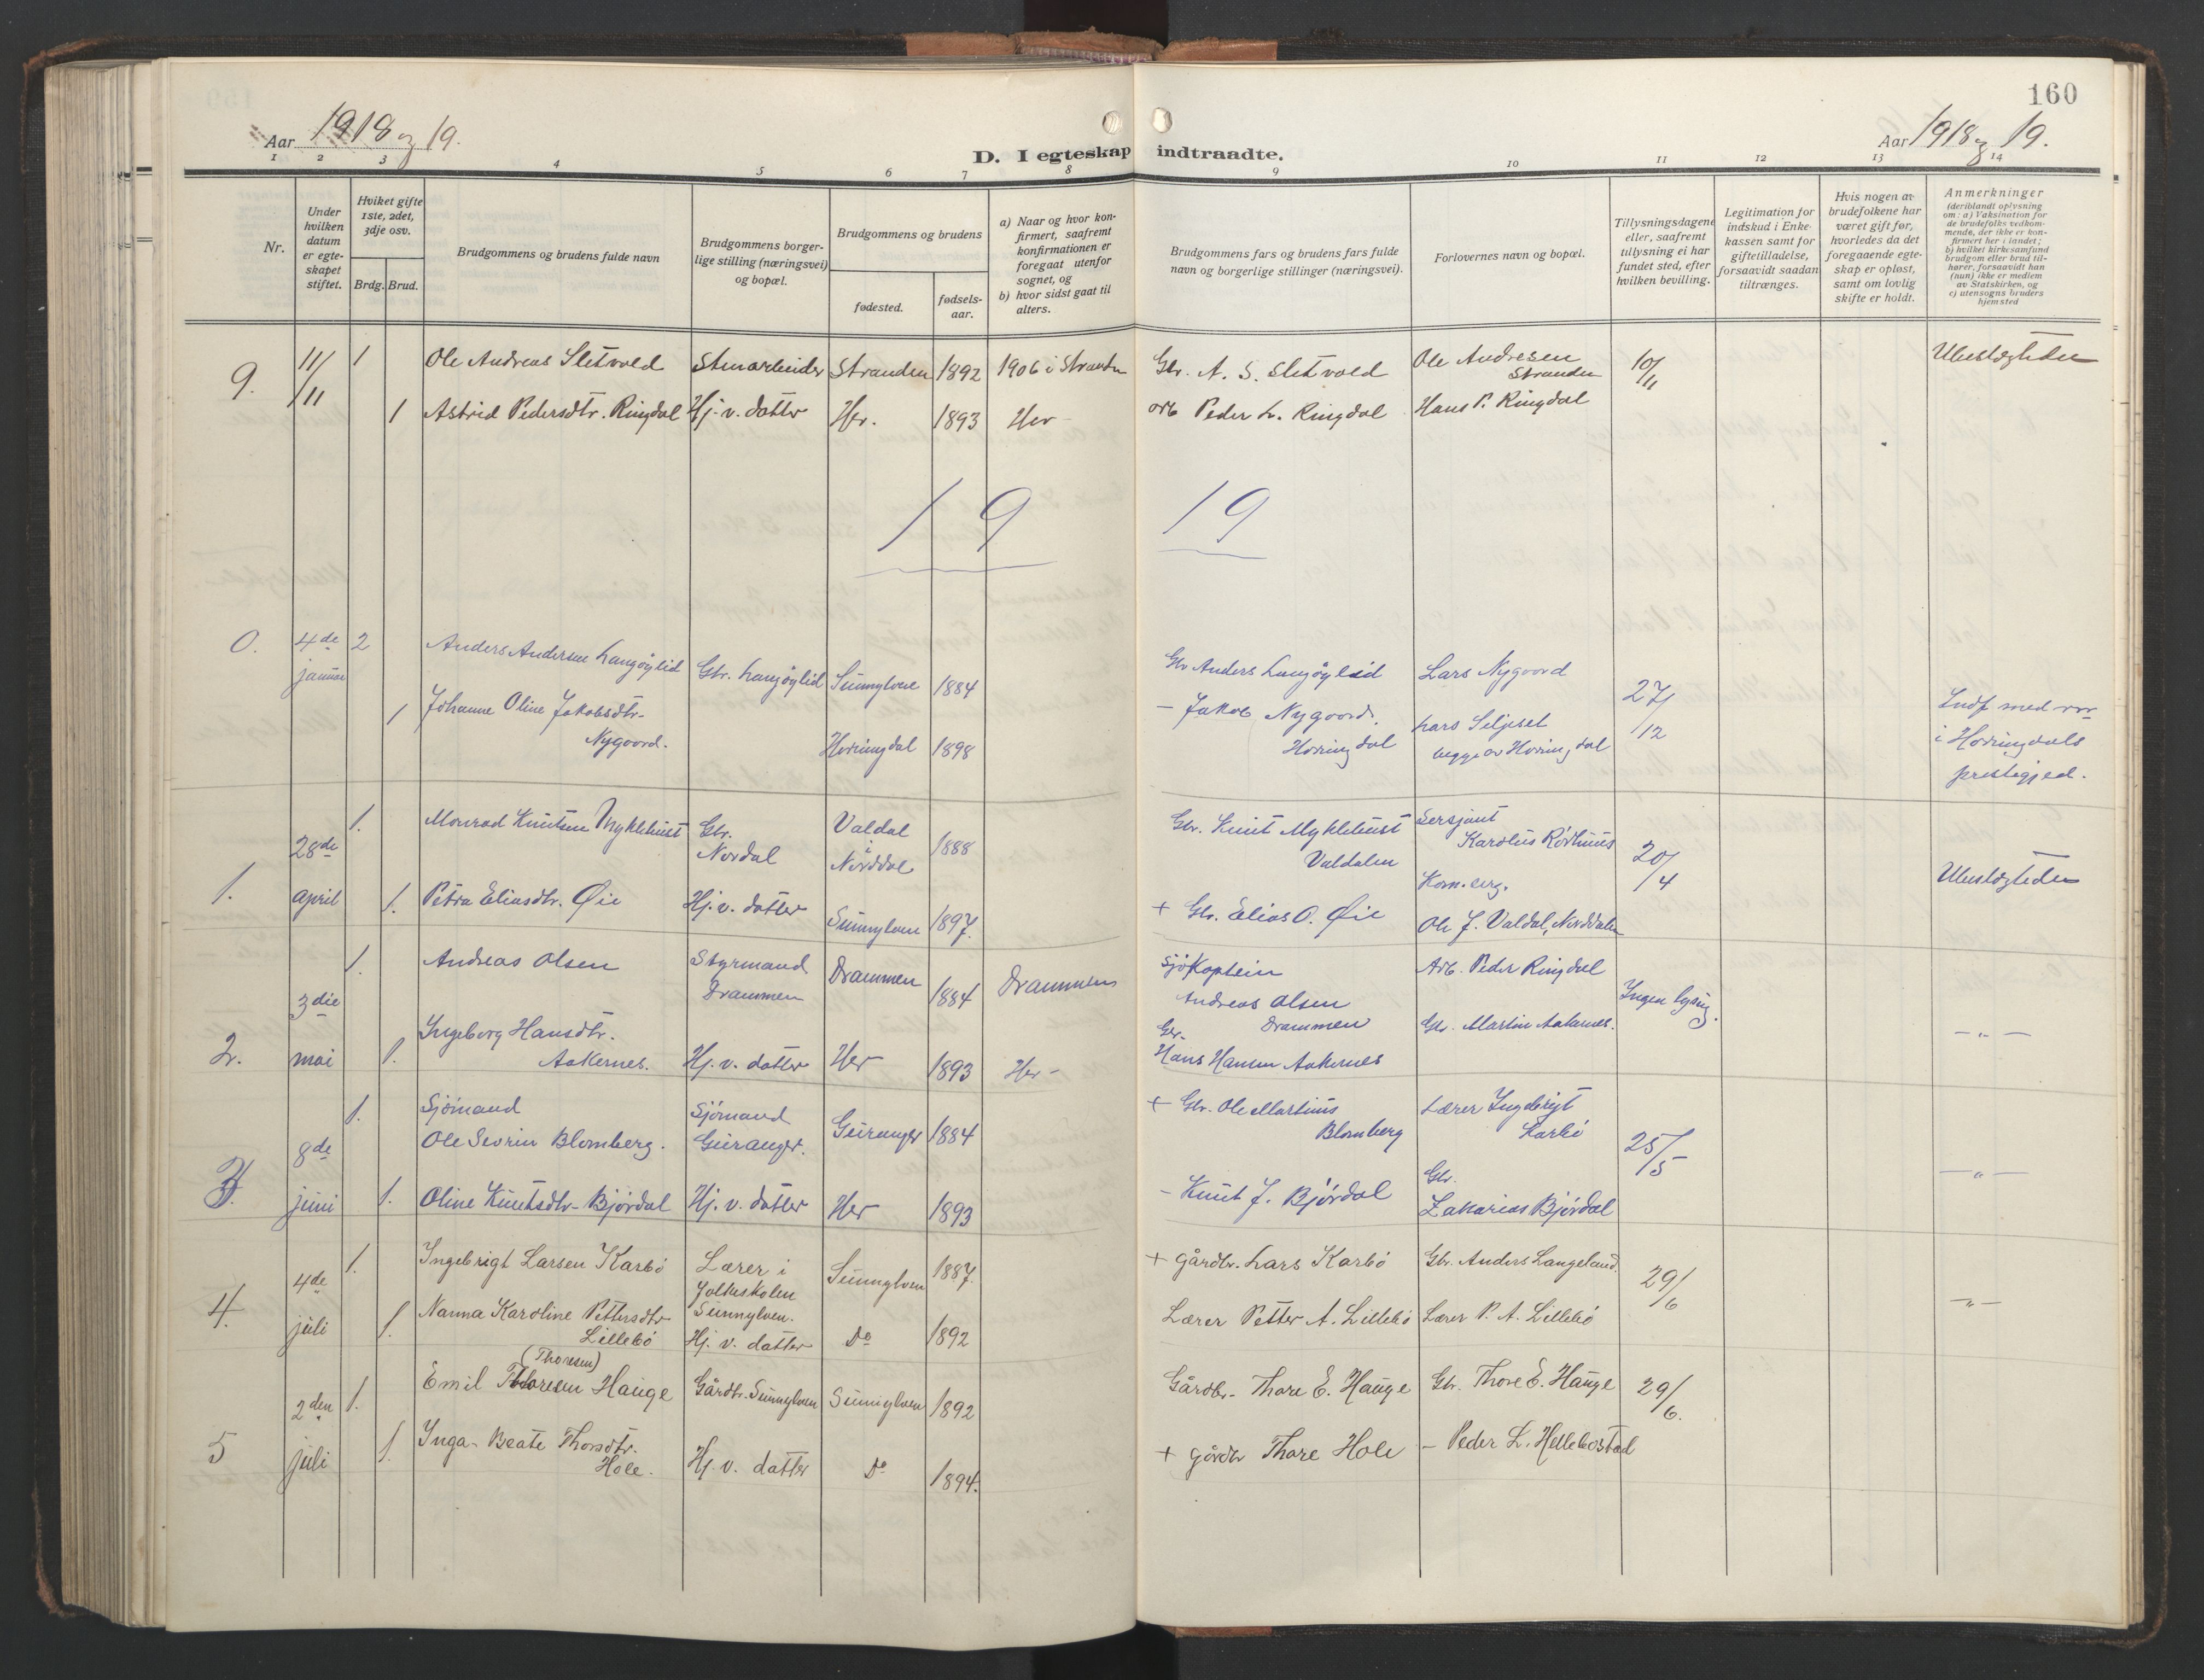 160
Aar 1918 og 19.
D. I egteskap indtraadte.
Aar 1918 og 19.
1 2 3 4 5 6 7 8 9 10 11 12 13 14
Nr.
Under hvilken datum er egteskapet stiftet.
Hviket gifte 1ste, 2det, 3dje osv.
Brdg. Brud.
Brudgommens og brudens fulde navn
Brudgommens borgerlige stilling (næringsvei) og bopæl.
Brudgommens og brudens
fødested.
fødsels-aar.
a) Naar og hvor konfirmert, saafremt konfirmationen er foregaat utenfor sognet, og
b) hvor sidst gaat til alters.
Brudgommens fars og brudens fars fulde navn og borgerlige stillinger (næringsvei).
Forlovernes navn og bopæl.
Tillysningsdagene eller, saafremt tillysning ei har fundet sted, efter hvilken bevilling.
Legitimation for indskud i Enkekassen samt for giftetilladelse, forsaavidt saadan tiltrænges.
Hvis nogen av brudefolkene har været gift før, hvorledes da det foregaaende egteskap er opløst, samt om lovlig skifte er holdt.
Anmerkninger (deriblandt oplysning om: a) Vaksination for de brudefolks vedkommende, der ikke er konfirmert her i landet; b) hvilket kirkesamfund brudgom eller brud tilhører, forsaavidt han (hun) ikke er medlem av Statskirken, og c) utensogns bruders hjemsted
9. 11/11 1 Ole Andreas Sletvold Stenarbeider Stranden 1892 1906 i Stranden Gbr. A. S. Sletvold Ole Andresen Stranden 10/11 Ubeslegtede
1 Astrid Pedersdtr. Ringdal Hj. v. datter Her. 1893 Her Arb Peder L. Ringdal Hans P. Ringdal
19 19
0. 4de januar 2 Anders Andersen Langøylid Gbr. Langøylid Sunnylven 1884 Gbr Anders Langøylid Lars Nygoord 27/12
1 Johanne Oline Jakobsdtr. Nygoord. Horningdal 1898 - Jakob Nygoord. Horningdal Lars Seljeset begge av Horningdal
Indf med nr i Horningdals prestegjed.
1. 28de april 1. Monrad Knutsen Myklebust Gbr. Nordal Valdal i Norddal 1888 Gbr. Knut Myklebust Valdalen Sersjant Karolus Rørhuus 20/4 Ubeslegtede
1. Petra Eliasdtr. Øie Hj. v. datter Sunnylven 1897. + Gbr. Elias O. Øie Ole J. Valdal, Norddalen
2. 3die mai 1. Andreas Olsen Styrmand Drammen Drammen 1884 Drammen Sjökaptein Andreas Olsen Drammen Arb. Peder Ringdal Ingen lysing. - " -
1. Ingeborg Hansdtr. Aakernes. Hj. v. datter Her 1893 Her - Gbr. Hans Hansen Aakernes Gbr. Martin Aakernes.
3. 8de juni 1. Sjömand Ole Sevrin Blomberg. Sjömand Geiranger. Geiranger 1884 + Gbr. Ole Martinus Blomberg Lærer Ingebrigt Karbö 25/5 - " -
1. Oline Knutsdtr. Bjørdal Hj. v. datter Her 1893 - Knut J. Bjørdal Gbr. Zakarias Bjørdal
4. 4de juli 1. Ingebrigt Larsen Karbö Lærer i folkeskolen Sunnylven. Sunnylven 1887. + Gårdbr. Lars Karbö Gbr. Anders Langeland. 29/6 - " -
1. Nanna Karoline Pettersdtr Lillebö Hj. v. datter Do 1892 Lærer Petter A. Lillebö Lærer P. A. Lillebö
5 2den juli 1. (Thoresen)
Emil Thoresen Hauge Gårdbr. Sunnylven Sunnylven 1892 Gårdbr. Thore E. Hauge Gbr. Thore E. Hauge 29/6.
1. Inga Beate Thorsdtr. Hole. Hj. v. datter Do 1894. + gårdbr Thore Hole - Peder L. Hellebostad